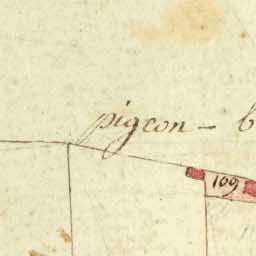 pigeon - b
109